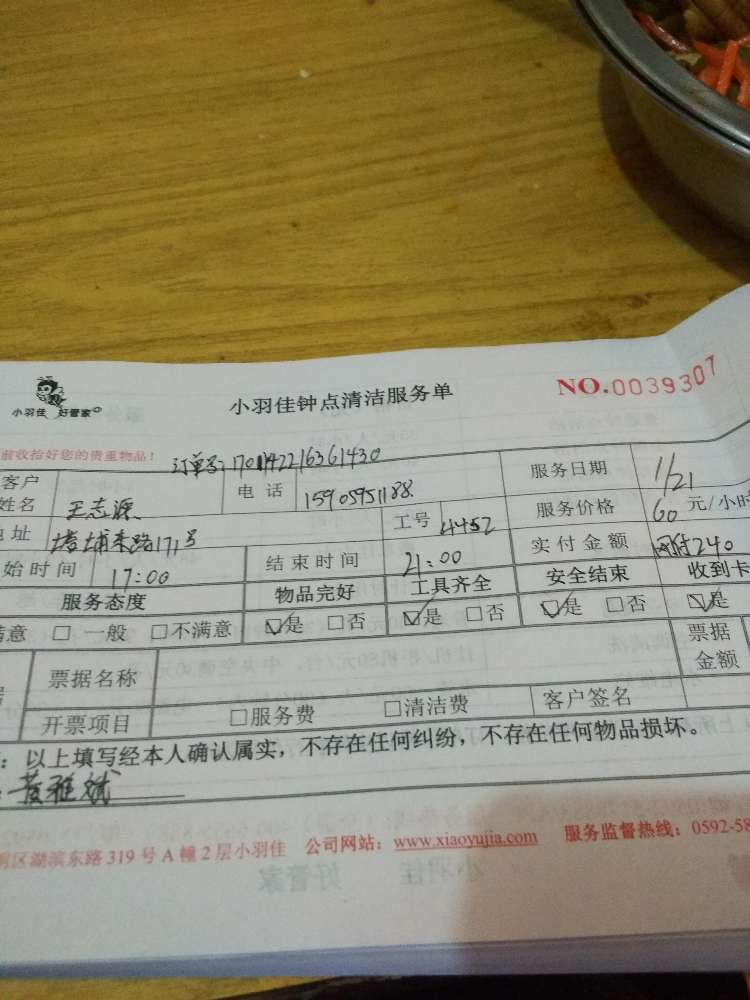 小羽佳 好管家
小羽佳钟点清洁服务单
NO.0039307
前收拾好您的贵重物品!
订单号:
客户姓名 王志源 电话 15905951188 服务日期 1/21
地址 171号 工号 4452 服务价格 60 元/小时
始时间 17:00 结束时间 21:00 实付金额 网付240
服务态度 物品完好 工具齐全 安全结束 收到卡
满意 □一般 □不满意 ☑是 □否 ☑是 □否 ☑是 □否 ☑是
票据名称 票据金额
开票项目 □服务费 □清洁费 客户签名
:以上填写经本人确认属实,不存在任何纠纷,不存在任何物品损坏。
: 黄雅斌
明区湖滨东路319号A幢2层小羽佳 公司网站:www.xiaoyujia.com 服务监督热线:0592-58